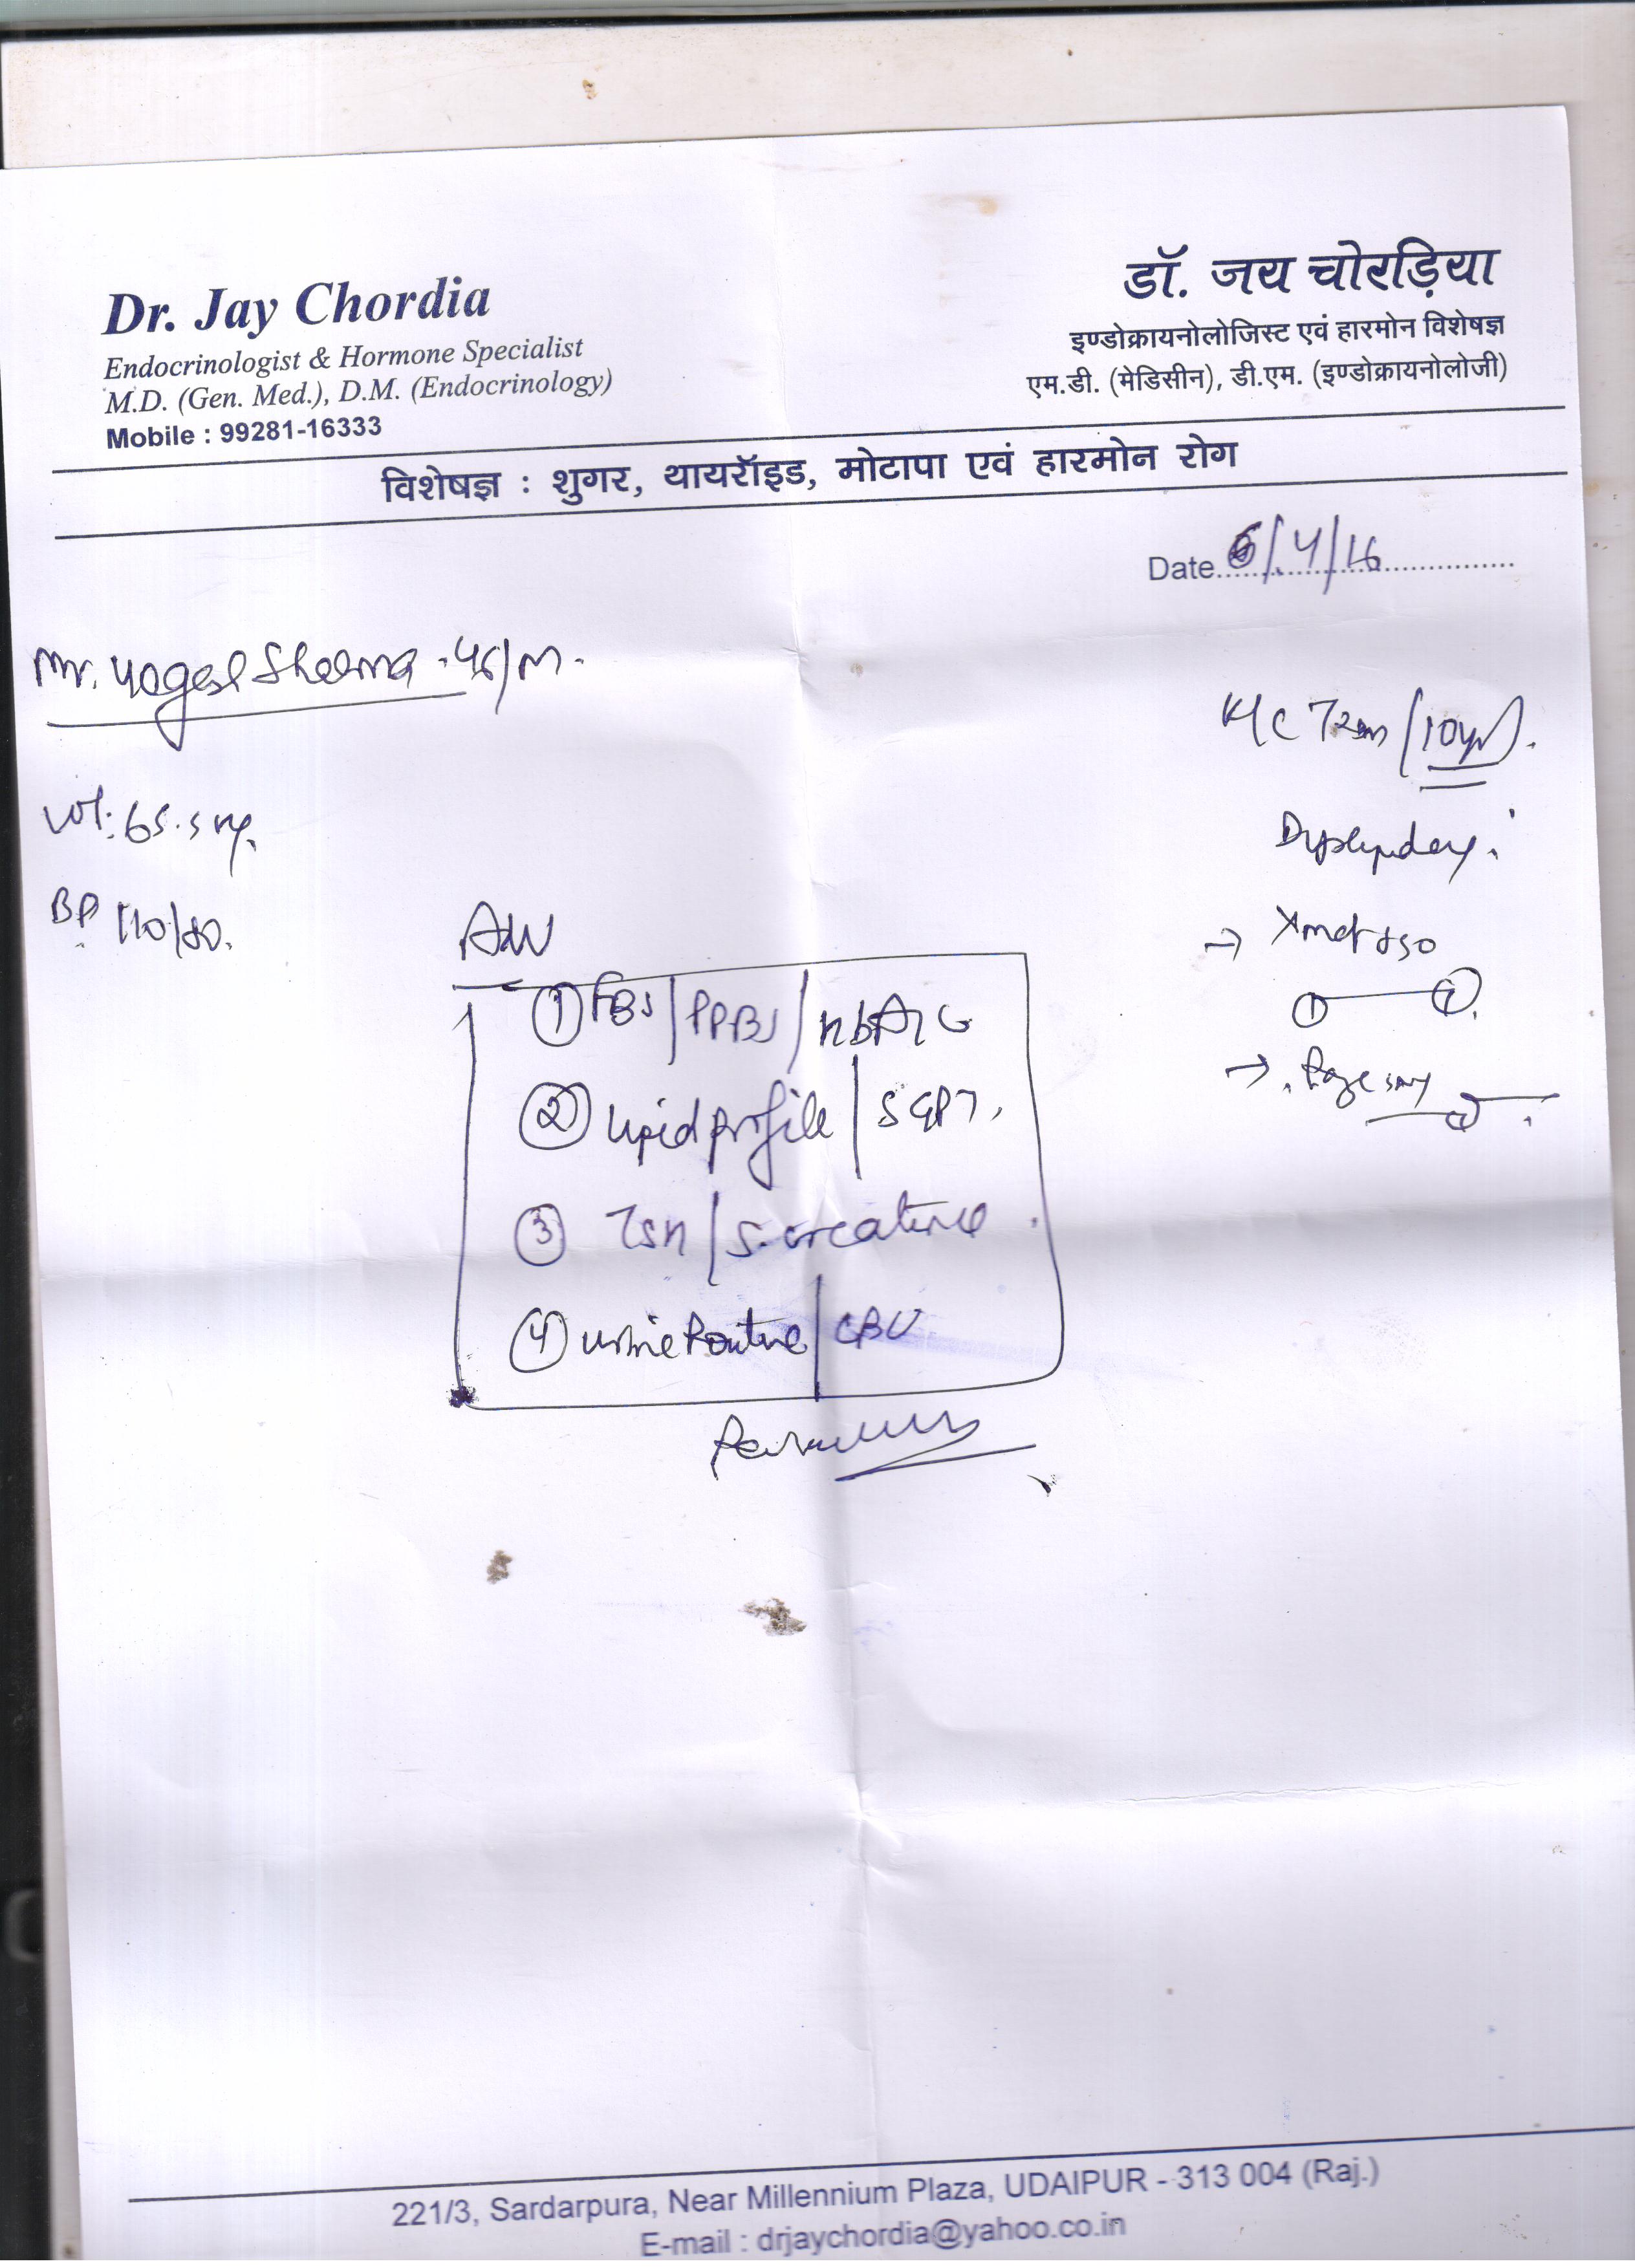 Dr. Jay Chordia
Endocrinologist & Hormone Specialist
M.D. (Gen. Med.), D.M. (Endocrinology)
Mobile : 99281-16333
डॉ. जय चोरड़िया
इण्डोक्रायनोलोजिस्ट एवं हारमोन विशेषज्ञ
एम.डी. (मेडिसीन), डी.एम. (इण्डोक्रायनोलोजी)
विशेषज्ञ : शुगर, थायरॉइड, मोटापा एवं हारमोन रोग
Date 6/4/16
Mr. Yogesh Sharma
Wt: 65.5 kg.
BP 110/80.
K/C T2DM / 10yr
→ Xmet 850
1 — 1
→
Adv
① FBS / PPBS / HbA1C
② Lipid profile / SGPT
③ TSH / S. creatinine
④ Urine Routine / CBC
221/3, Sardarpura, Near Millennium Plaza, UDAIPUR - 313 004 (Raj.)
E-mail : drjaychordia@yahoo.co.in